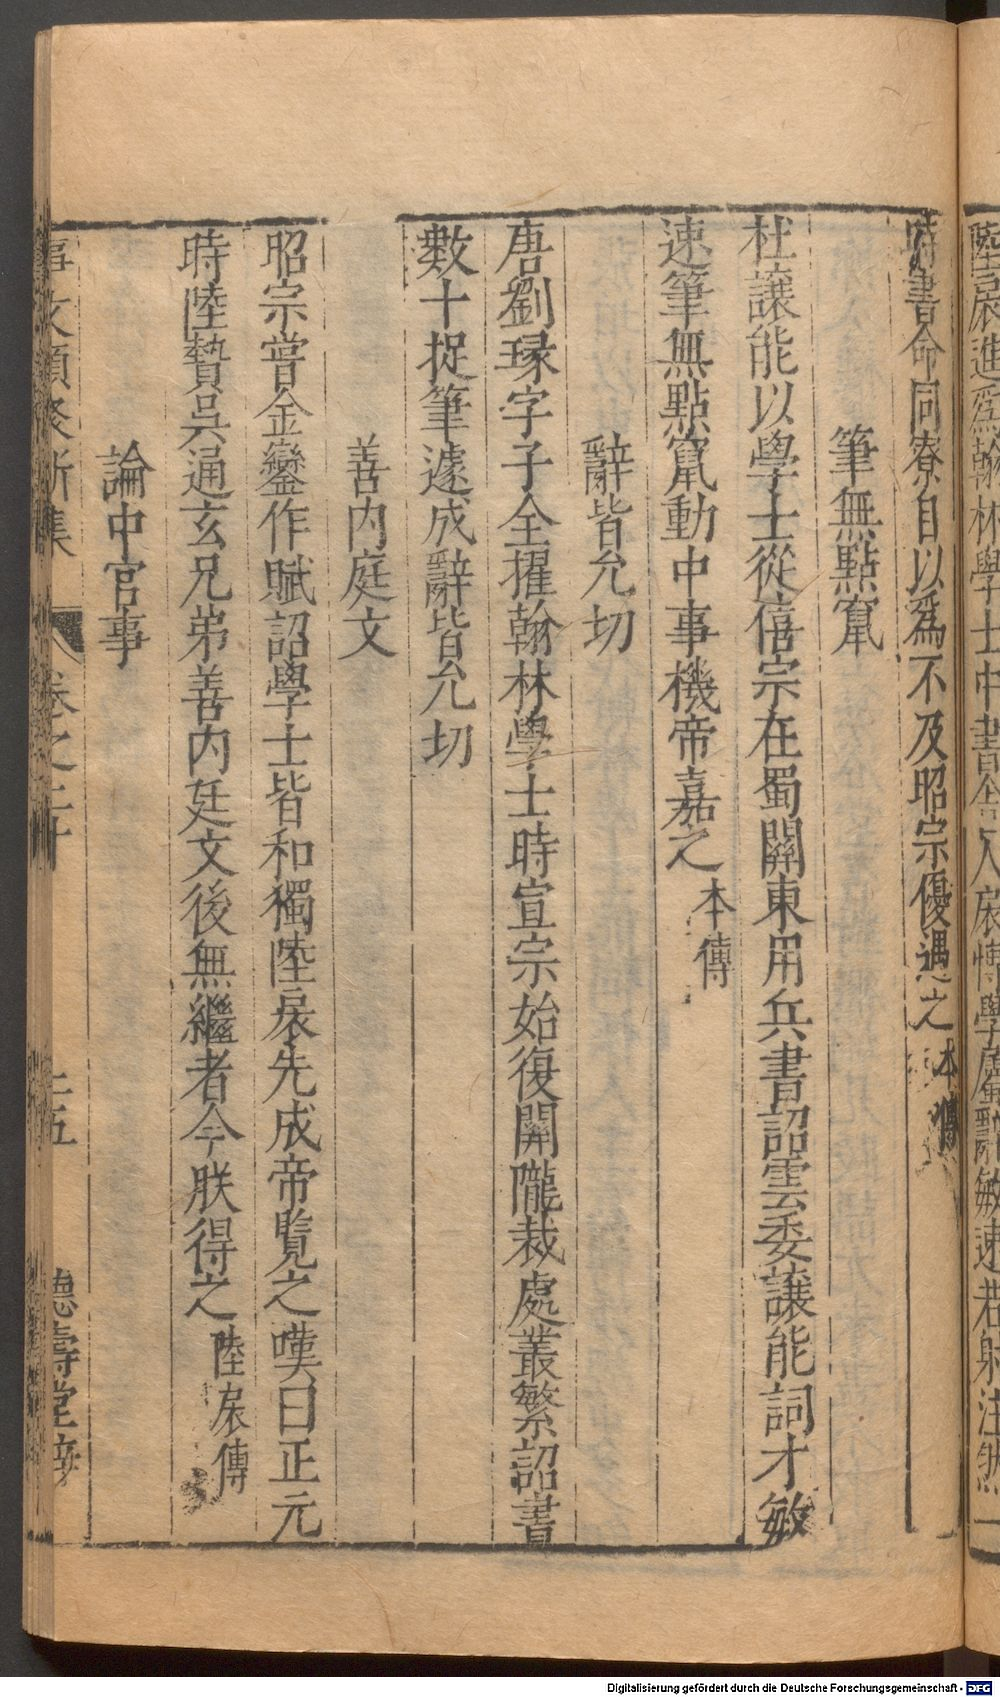 陸扆進爲翰林學士中書舍人扆博學屬辭敏速若射注然一
時書命同寮自以爲不及昭宗優遇之 本傳
筆無點竄
杜讓能以學士從僖宗在蜀關東用兵書詔雲委讓能詞才敏
速筆無點竄動中事機帝嘉之 本傳
辭皆允切
唐劉瑑字子全擢翰林學士時宣宗始復關隴裁處叢繁詔書
數十捉筆遽成辭皆允切
善內庭文
昭宗嘗金鑾作賦詔學士皆和獨陸扆先成帝覽之嘆曰正元
時陸贄吳通玄兄弟善內廷文後無繼者今朕得之 陸扆傳
論中官事
事文類聚新集 卷之二十 十五 德壽堂梓
Digitalisierung gefördert durch die Deutsche Forschungsgemeinschaft - DFG